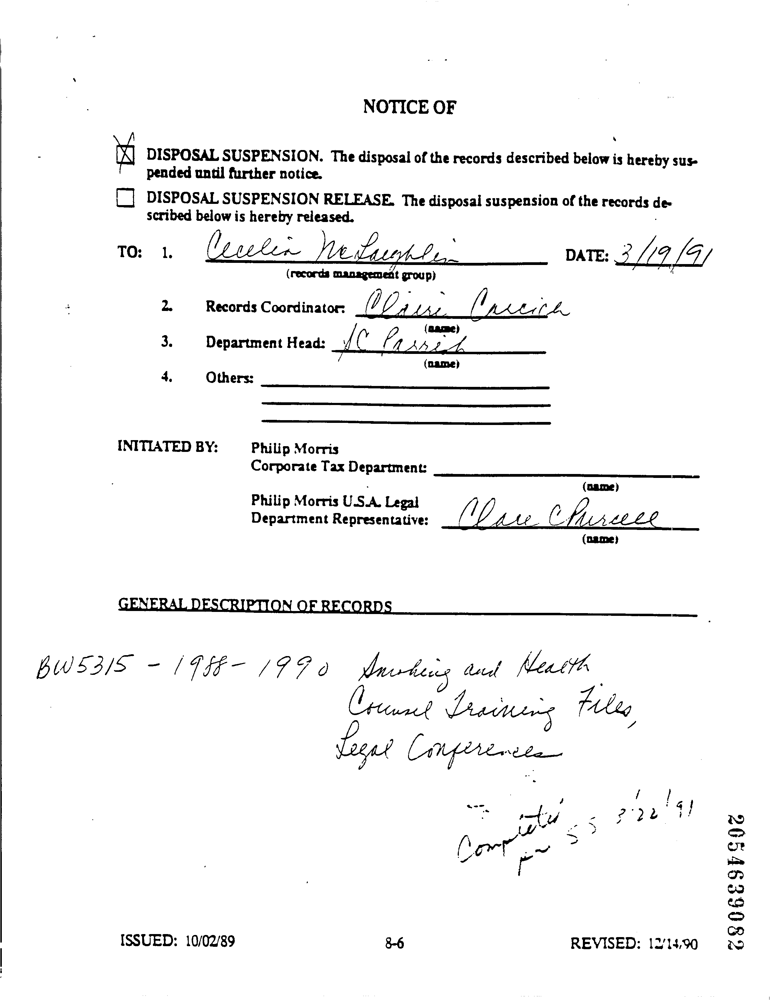 NOTICE OF
DISPOSAL SUSPENSION. The disposal of the records described below is hereby sus-
pended until further notice.
DISPOSAL SUSPENSION RELEASE. The disposal suspension of the records de-
scribed below is hereby released.
TO: 1. Cecelia McLaughlin DATE: 3/19/91
(records management group)
2. Records Coordinator: Claire
(name)
3. Department Head: JC Parrish
(name)
4. Others:
INITIATED BY: Philip Morris
Corporate Tax Department:
(name)
Philip Morris U.S.A. Legal
Department Representative: Clare C Purcell
(name)
GENERAL DESCRIPTION OF RECORDS
BW5315 - 1988-1990 Smoking and Health
Counsel Training Files,
Legal Conferences
Completed
SS 3/22/91
2054639082
ISSUED: 10/02/89 8-6 REVISED: 12/14/90